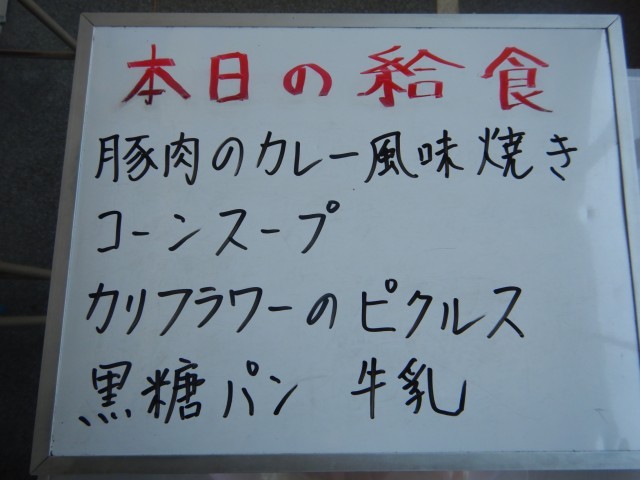 本日の給食
豚肉のカレー風味焼き
コーンスープ
カリフラワーのピクルス
黒糖パン 牛乳